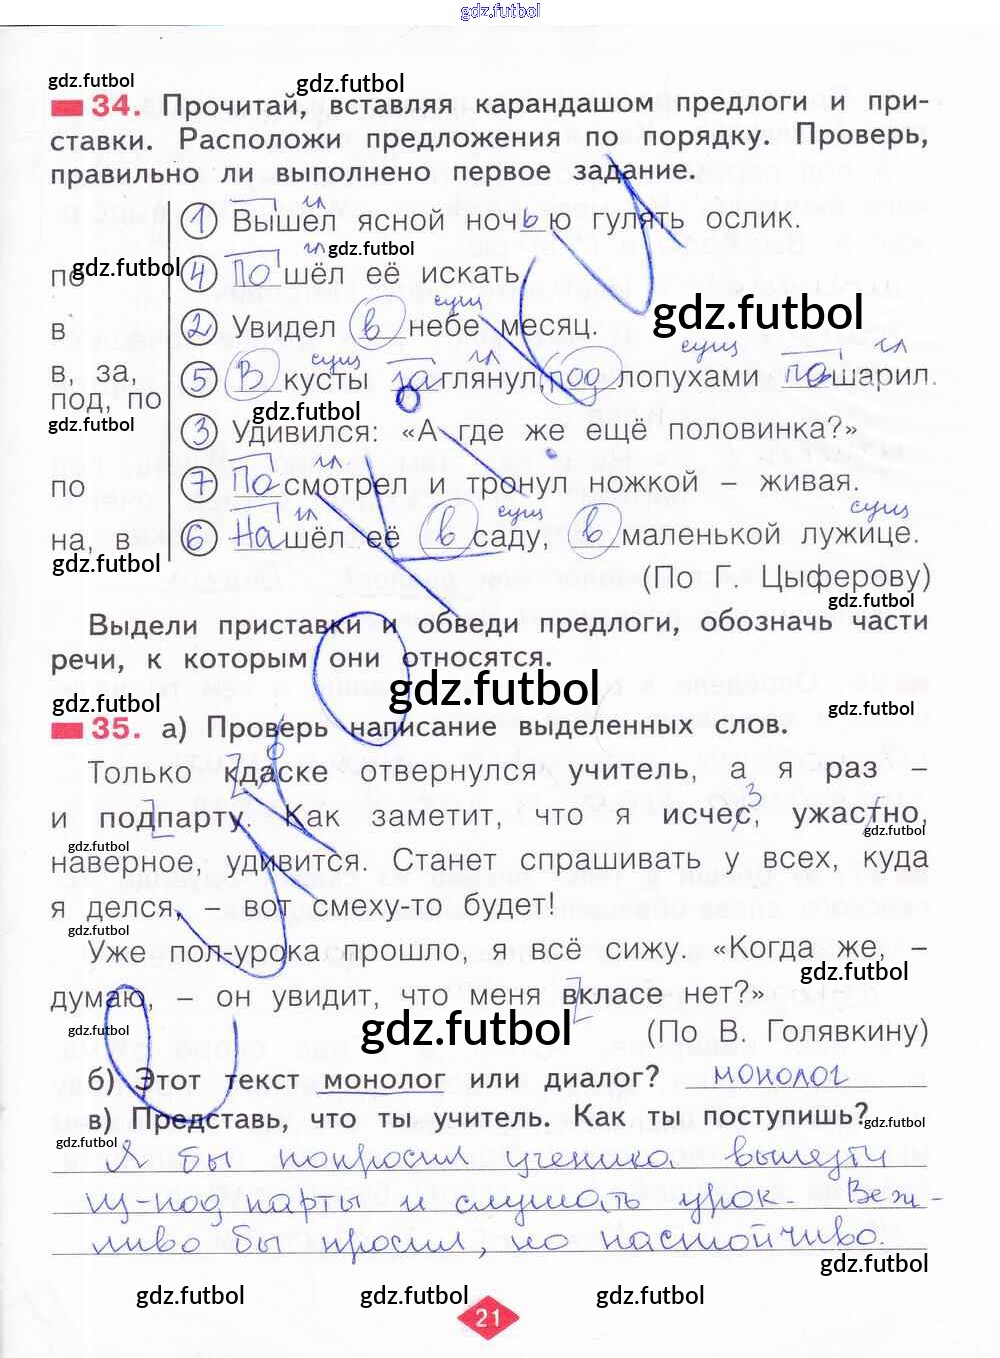 gdz.futbol
gdz.futbol
gdz.futbol
34. Прочитай, вставляя карандашом предлоги и при-
ставки. Расположи предложения по порядку. Проверь,
правильно ли выполнено первое задание.
гл
1 Вышел ясной ночью гулять ослик.
гл
gdz.futbol
по 4 Пошёл её искать.
gdz.futbol
сущ
gdz.futbol
в 2 Увидел в небе месяц.
сущ гл сущ гл
в, за, 5 В кусты заглянул, под лопухами пошарил.
под, по
gdz.futbol
gdz.futbol
3 Удивился: «А где же ещё половинка?»
гл
по 7 Посмотрел и тронул ножкой – живая.
гл сущ сущ
на, в 6 Нашёл её в саду, в маленькой лужице.
gdz.futbol
(По Г. Цыферову)
gdz.futbol
Выдели приставки и обведи предлоги, обозначь части
речи, к которым они относятся.
gdz.futbol
gdz.futbol
gdz.futbol
35. а) Проверь написание выделенных слов.
Только кдаске отвернулся учитель, а я раз –
и подпарту. Как заметит, что я исчес, ужастно,
з
gdz.futbol
gdz.futbol
наверное, удивится. Станет спрашивать у всех, куда
я делся, – вот смеху-то будет!
gdz.futbol
Уже пол-урока прошло, я всё сижу. «Когда же, –
gdz.futbol
думаю, – он увидит, что меня вкласе нет?»
gdz.futbol
gdz.futbol
(По В. Голявкину)
б) Этот текст монолог или диалог? монолог
в) Представь, что ты учитель. Как ты поступишь?
gdz.futbol
gdz.futbol
Я бы попросил ученика вылезти
из-под парты и слушать урок. Веж-
ливо бы просил, но настойчиво.
gdz.futbol
gdz.futbol
gdz.futbol
gdz.futbol
21